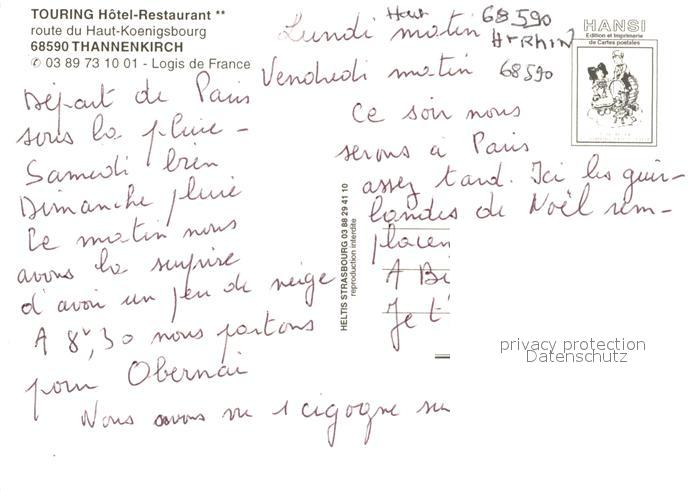 TOURING Hôtel-Restaurant **
route du Haut-Koenigsbourg
68590 THANNENKIRCH
✆ 03 89 73 10 01 - Logis de France
Lundi matin
Haut 68590
Ht RHIN
68590
Départ de Paris
sous la pluie -
Samedi bien
Dimanche pluie
Ce matin nous
avons la surprise
d'avoir un peu de neige
A 8h,30 nous partons
pour Obernai
Nous avons vu 1 cigogne su
Vendredi matin
Ce soir nous
serons à Paris
assez tard. Ici les guir-
landes de Noël rem-
placen
A Bi
Je t'
HELTIS STRASBOURG 03 88 29 41 10
reproduction interdite
HANSI
Edition et Imprimerie
de Cartes postales
privacy protection
Datenschutz